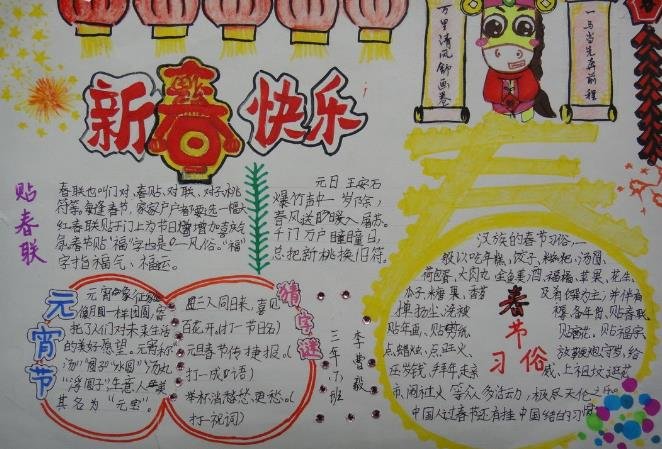 万里清风舒画卷
一马当先奔前程
新春快乐
贴春联
春联也叫门对、春贴、对联、对子,桃
符等。每逢春节,家家户户都要选一幅大
红春联贴于门上为节日增加喜庆
气氛。春节贴“福”字也是
风俗。“福”
字指福气、福运。
元日 王安石
爆竹声中一岁除,
春风送暖入屠苏。
千门万户曈曈日,
总把新桃换旧符。
元宵节
元宵象征
像月圆一样团圆,寄
托了人们对未来生活
的美好愿望。元宵
汤”
“浮圆子”,生意人
其名为“元宝”。
猜字谜
三人同日来,喜见
百花开。(打一节日名)
元旦春节传捷报。(
打一成语)
举杯消愁愁更愁。(
打一祝词)
李曹毅
三年
班
汉族的春节习俗,一
般以吃年糕、饺子、糍粑、汤圆、
荷包蛋、大肉丸、全鱼、美酒、福橘、苹果、花生、
瓜子、糖果、香茗
及肴馔为主;并伴有
掸扬尘、洗被
贴春联、
贴年画、贴剪纸、
贴窗花、贴福字、
点蜡烛、点旺火、
放鞭炮、守岁、给
压岁钱、拜年、走亲
戚、上祖坟、逛花
市、闹社火等众多活动,极尽天伦之乐。
中国人过春节还有挂中国结的习俗
春节习俗